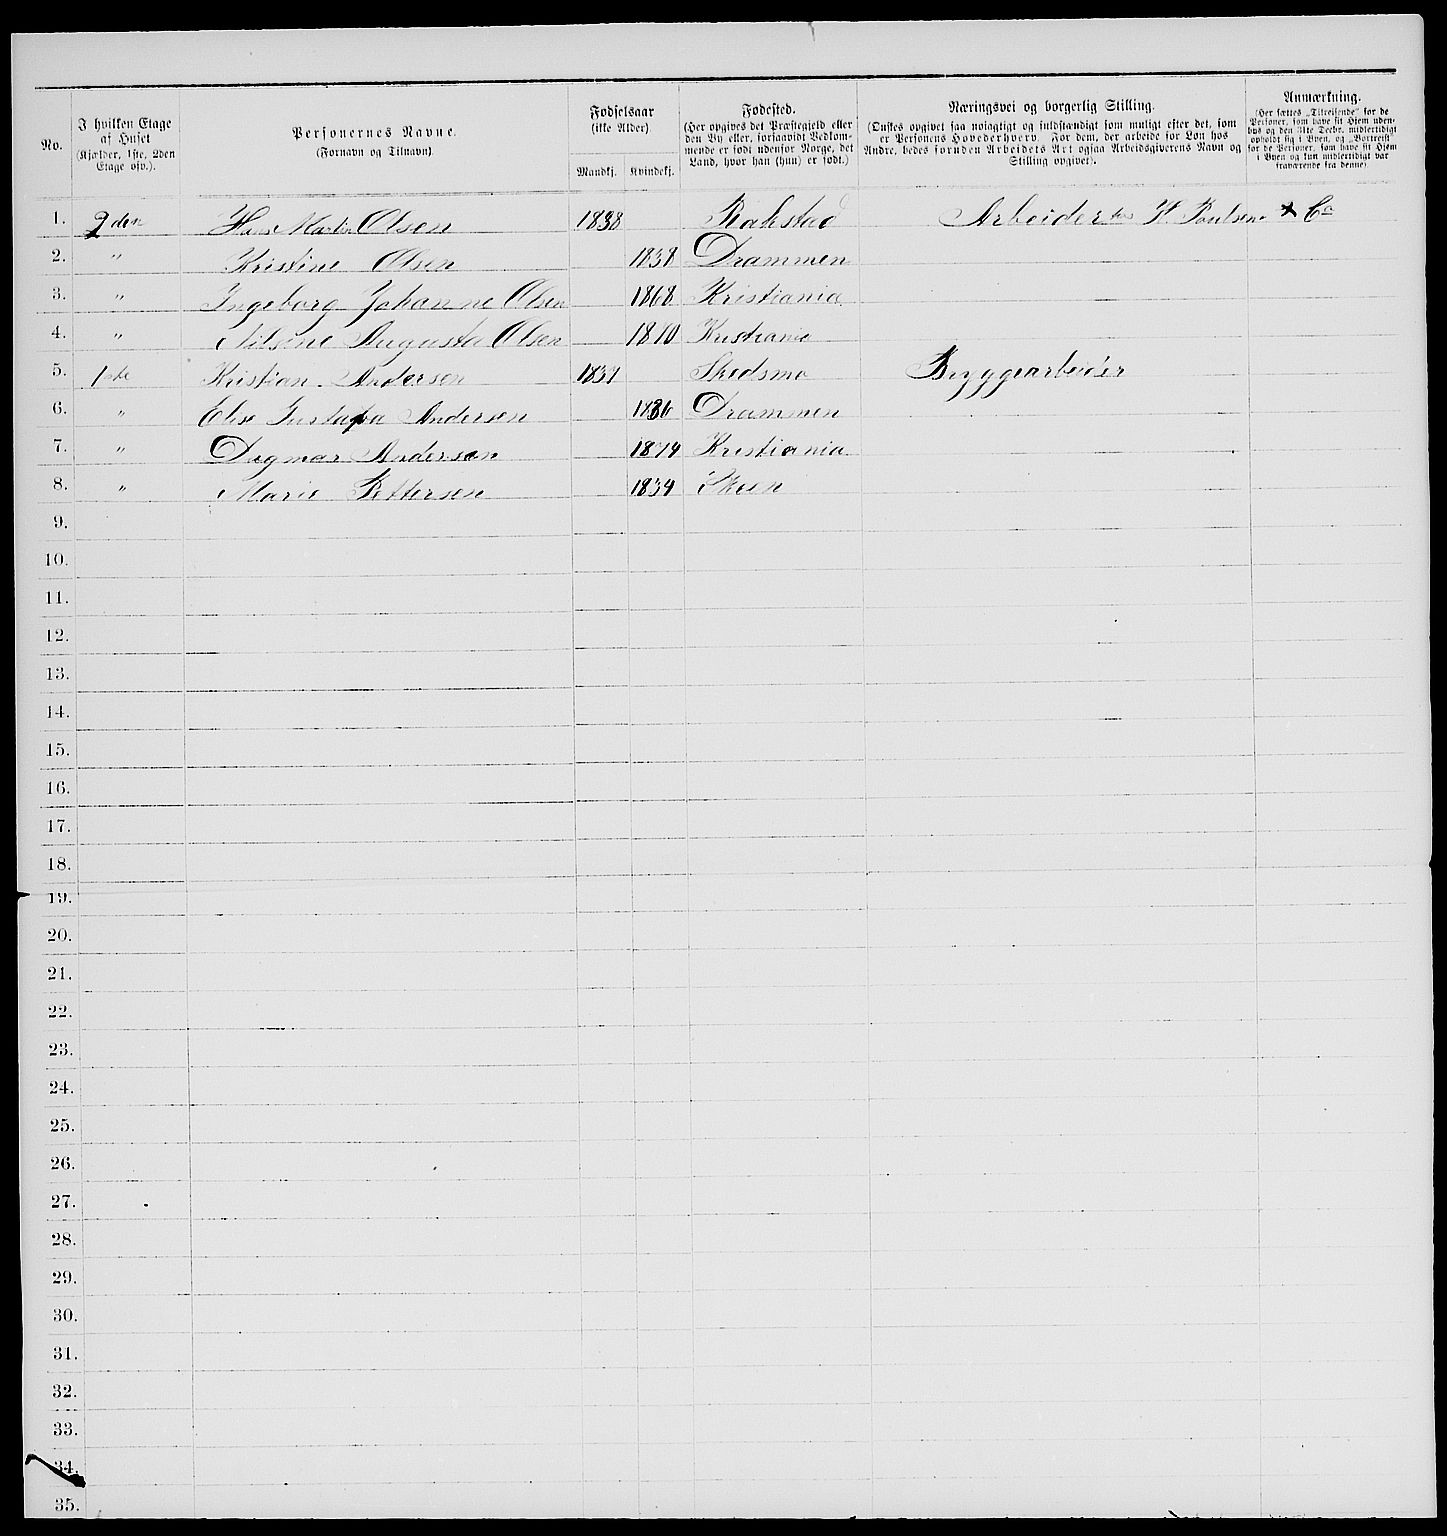 No.
I hvilken Etage
af Huset
(Kjælder, 1ste, 2den
Etage osv.).
Personernes Navne.
(Fornavn og Tilnavn)
Fødselsaar
(ikke Alder)
Mandkj. Kvindekj.
Fødested.
(Her opgives det Præstegjeld eller
den By eller, forsaavidt Vedkom-
mende er født udenfor Norge, det
Land, hvor han (hun) er født.)
Næringsvei og borgerlig Stilling.
(Ønskes opgivet saa nøiagtigt og fuldstændigt som muligt efter det, som
er Personens Hovederhverv. For dem, der arbeide for Løn hos
Andre, bedes foruden Arbeidets Art ogsaa Arbeidsgiverens Navn og
Stilling opgivet).
Anmærkning.
(Her sættes „Tilreisende" for de
Personer, som have sit Hjem uden-
bys og den 31te Decbr. midlertidigt
opholdt sig i Byen, og „Bortreist"
for de Personer, som have sit Hjem
i Byen og kun midlertidigt var
fraværende fra denne)
1. 2den Hans Martin Olsen 1838 Rakstad Arbeider hos H. Poulsen & Co
2. " Kristine Olsen 1838 Drammen
3. " Ingeborg Johanne Olsen 1868 Kristiania
4. " Nilsine Augusta Olsen 1870 Kristiania
5. 1ste Kristian Andersen 1837 Skedsmo Bryggearbeider
6. " Elise Gustava Andersen 1836 Drammen
7. " Dagmar Andersen 1874 Kristiania
8. " Marie Pettersen 1834 Skien
9.
10.
11.
12.
13.
14.
15.
16.
17.
18.
19.
20.
21.
22.
23.
24.
25.
26.
27.
28.
29.
30.
31.
32.
33.
34.
35.